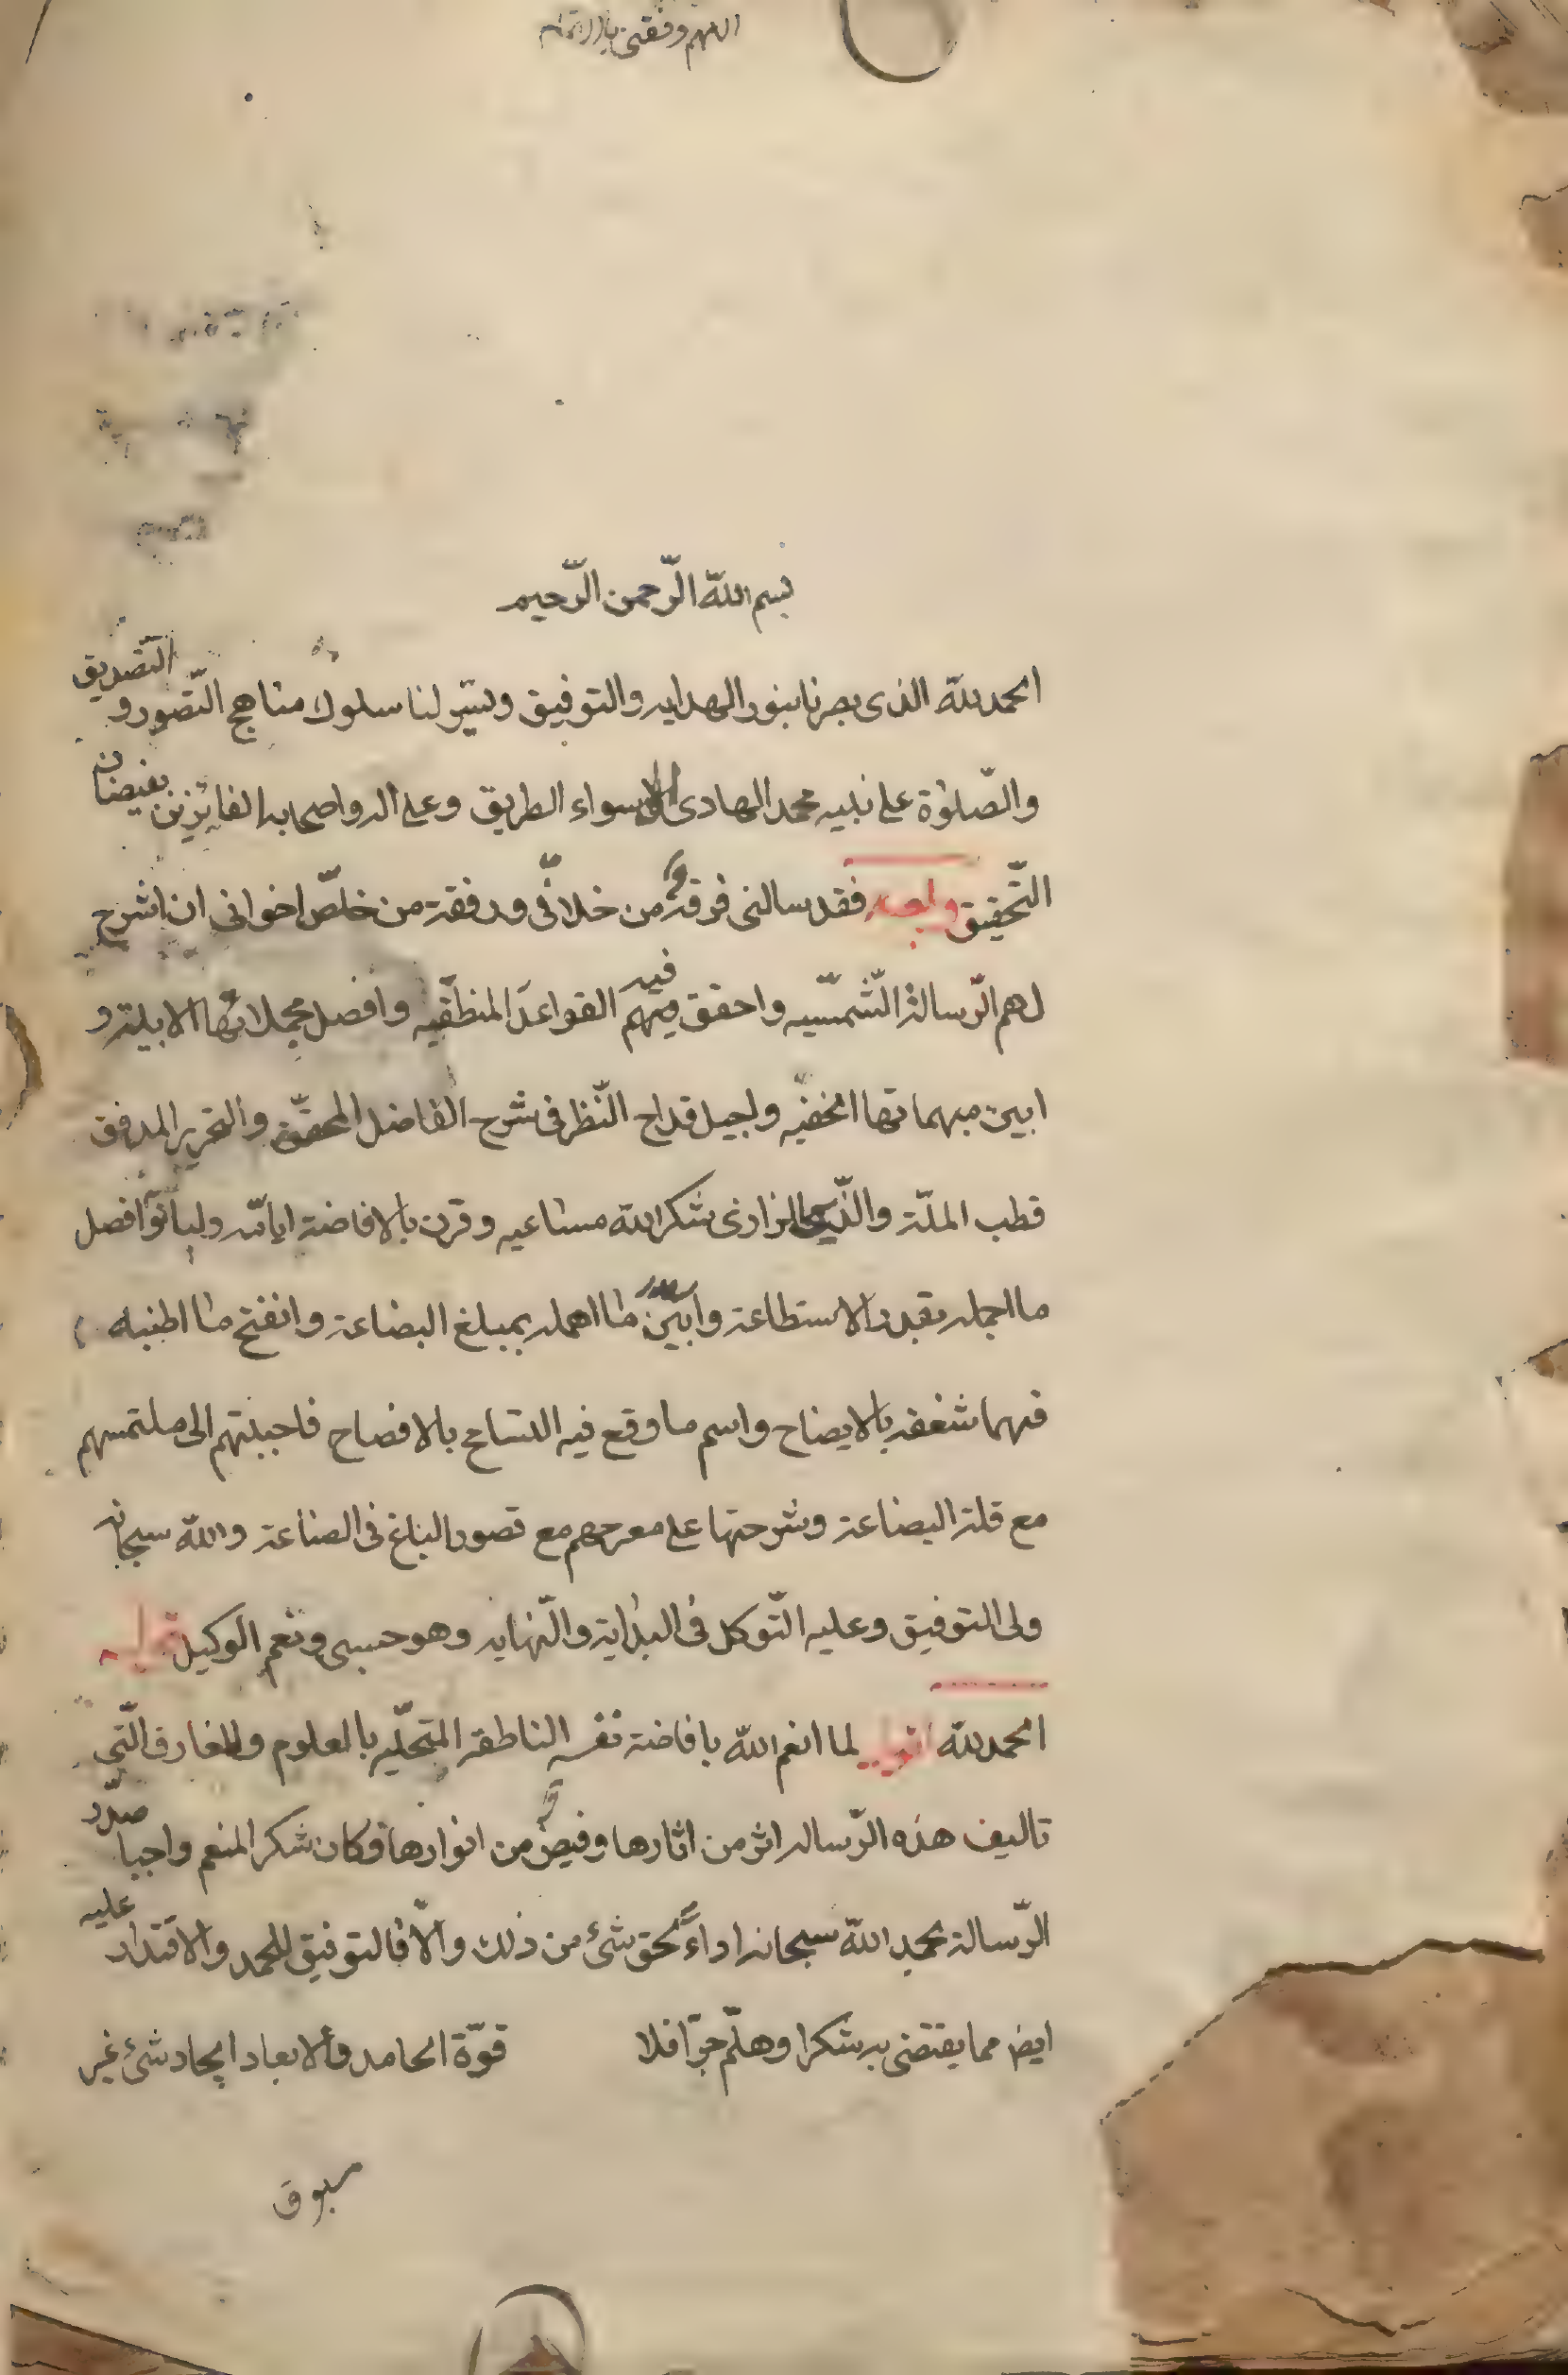 اللهم وفقنی بالاتمام
بسم الله الرّحمن الرّحيم
الحمد لله الذى بصرنا بنور الهدايه والتوفيق ويسّر لنا سلوك مناهج التّصور و التّصديق
والصّلوٰة على نبيه محمد الهادى الى سواء الطريق وعلى اله واصحابه الفائزين بفيضان
التّحقيق وبعد فقد سالنى فرقة من خلانّى ورفقة من خلّص اخوانى ان اشرح
لهم الرّسالة الشّمسّيه واحقق فيه القواعد المنطّقيه وافصل مجملاتها الابيته و
ابين مبهماتها الخفيّه واجيل قداح النّظر فى شرح الفاضل المحقّق والنحرير المدقق
قطب الملّة والدّين الرازى شكر الله مساعيه وقرن بالافاضة ايامه ولياليه افصل
ما اجمله بقدر الاستطاعة وابيّن ما اهمله بمبلغ البضاعة وانقح ما اطنبه
فهما شغفه بالايضاح واسم ما وقع فيه التسامح بالافصاح فاجبتهم الى ملتمسهم
مع قلة البضاعة وشرحتها على مقترحهم مع قصور الباع فى الصناعة والله سبحانه
ولى التوفيق وعليه التّوكل فى البداية والنّهايه وهو حسبى ونعم الوكيل قوله
الحمد لله اقول لما انعم الله بافاضة نفسه الناطقة المتحلّيه بالعلوم والمعارف الّتى
تاليف هذه الرّساله اثر من اثارها وفيض من انوارها وكان شكر المنعم واجبا صدّر
الرّسالة بحمد الله سبحانه اداءً لحق شئ من ذلك والّا فالتوفيق للحمد والاقتدار عليه
ايض مما يقتضى به شكرا وهلّم جرّا فلا قوّة الحامد والابعاد ايجاد شئ غير
مسبوق